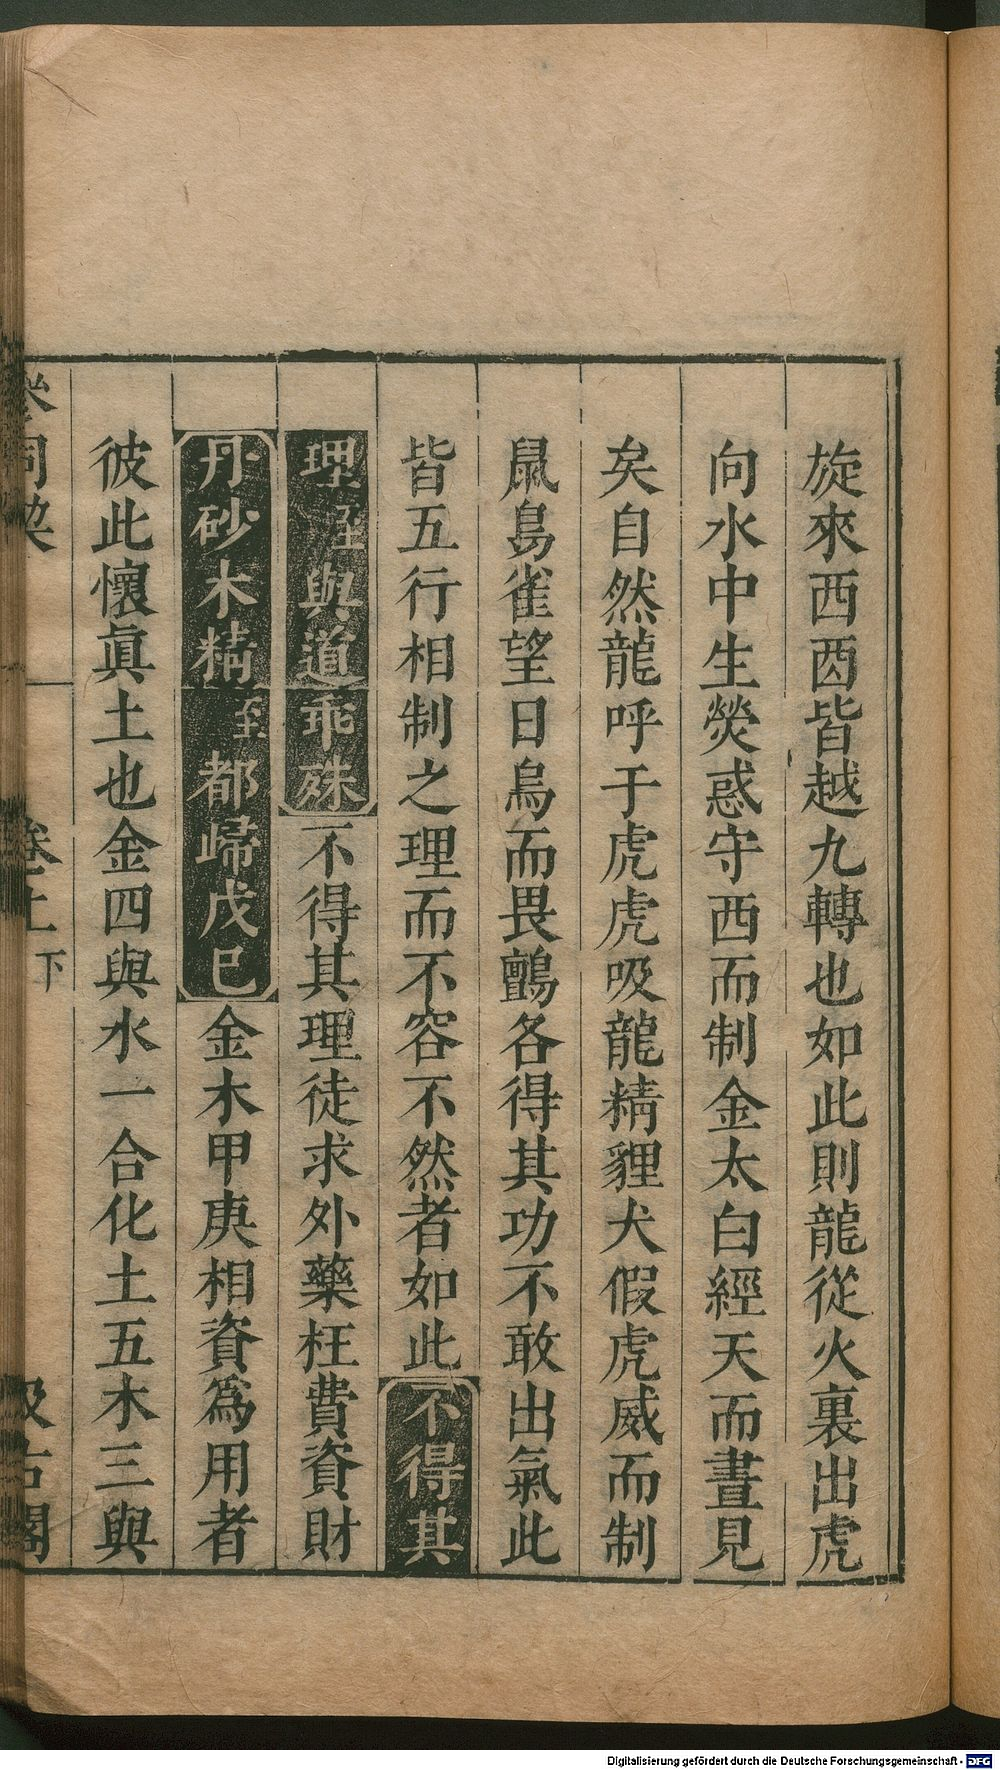 旋來西酉皆越九轉也如此則龍從火裏出虎
向水中生熒惑守西而制金太白經天而晝見
矣自然龍呼于虎虎吸龍精貍犬假虎威而制
鼠鳥雀望日烏而畏鸇各得其功不敢出氣此
皆五行相制之理而不容不然者如此不得其
理至與道乖殊不得其理徒求外藥枉費資財
丹砂木精至都歸戊巳金木甲庚相資爲用者
彼此懷眞土也金四與水一合化土五木三與
參同契 卷上下 汲古閣
Digitalisierung gefördert durch die Deutsche Forschungsgemeinschaft - DFG